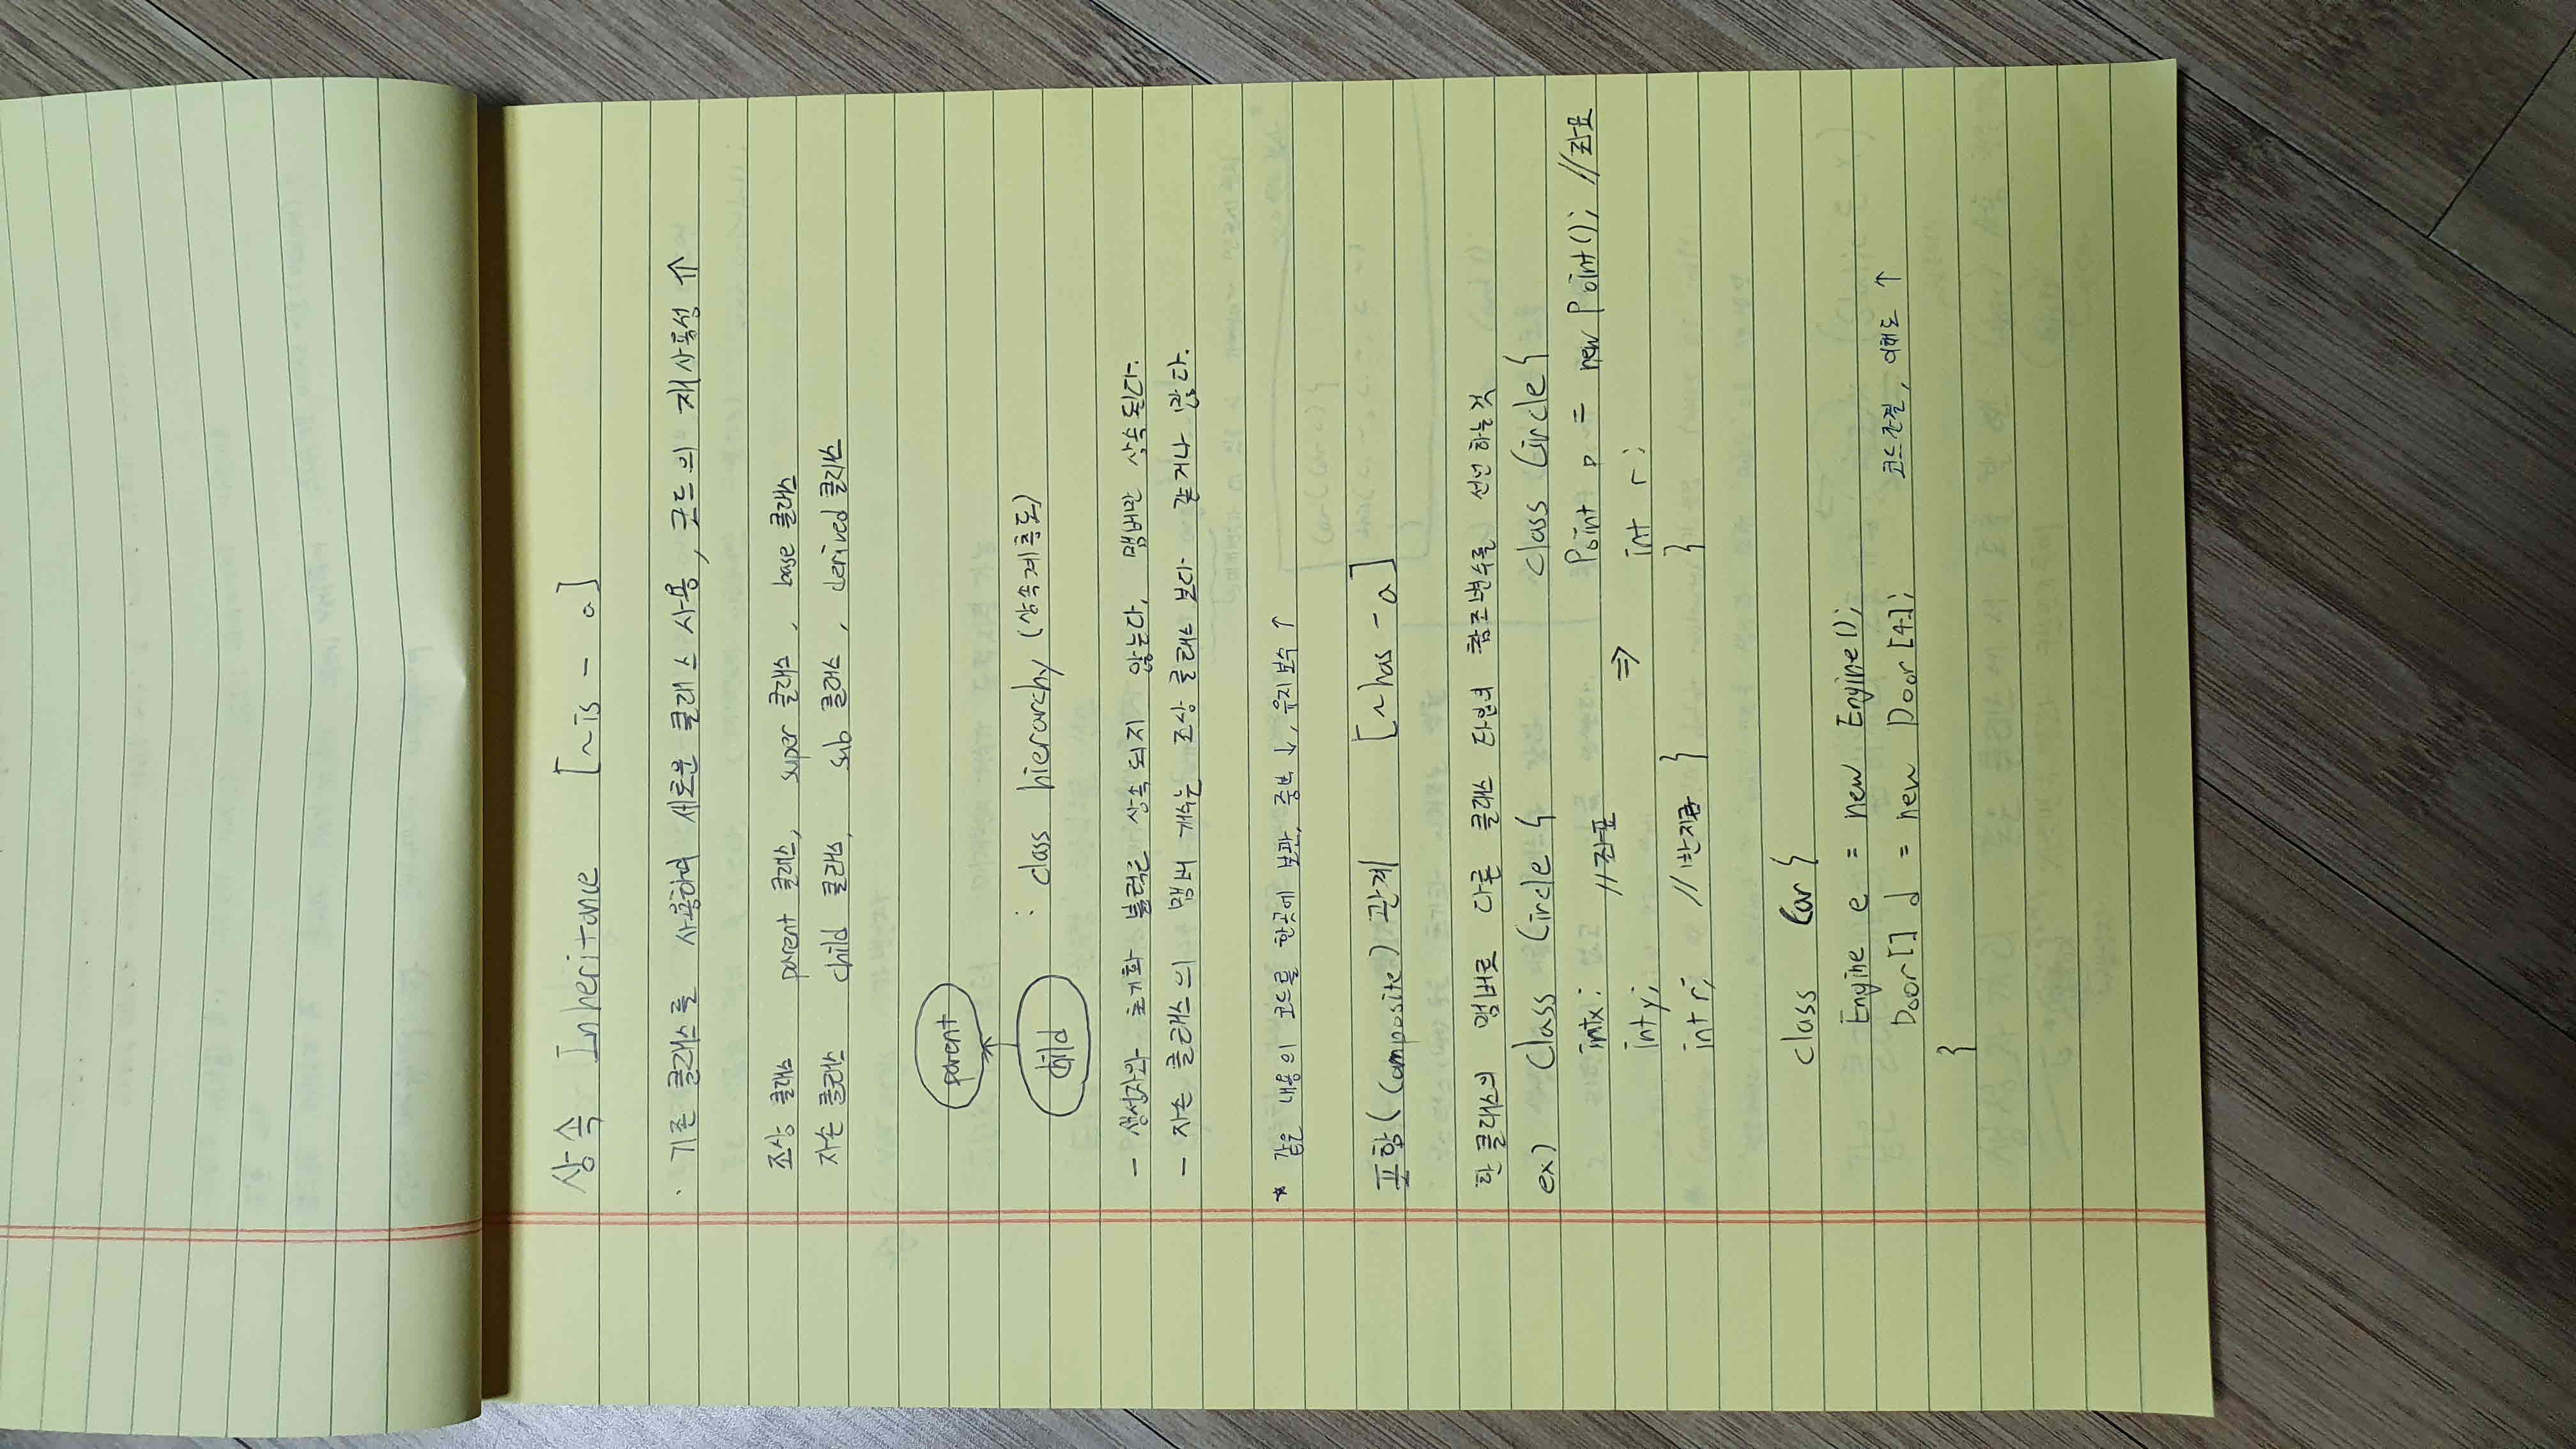 상속 Inheritance [~is - a]
· 기존 클래스를 사용하여 새로운 클래스 사용, 코드의 재사용성 ↑
조상 클래스 parent 클래스, super 클래스, base 클래스
자손 클래스 child 클래스, sub 클래스, derived 클래스
parent
child : class hierarchy (상속계층도)
- 생성자와 초기화 블럭은 상속 되지 않는다, 멤버만 상속된다.
- 자손 클래스의 멤버 개수는 조상 클래스 보다 같거나 많다.
* 같은 내용의 코드를 한곳에 보관, 중복 ↓, 유지보수 ↑
포함(Composite) 관계 [~has - a]
한 클래스의 멤버로 다른 클래스 타입의 참조변수를 선언 하는 것
ex) Class Circle { class Circle {
intx; //좌표 Point p = new Point(); //좌표
inty; ⇒ int r;
int r; //반지름 } }
class Car {
Engine e = new Engine();
Door[] d = new Door[4]; 코드간결, 이해도 ↑
}